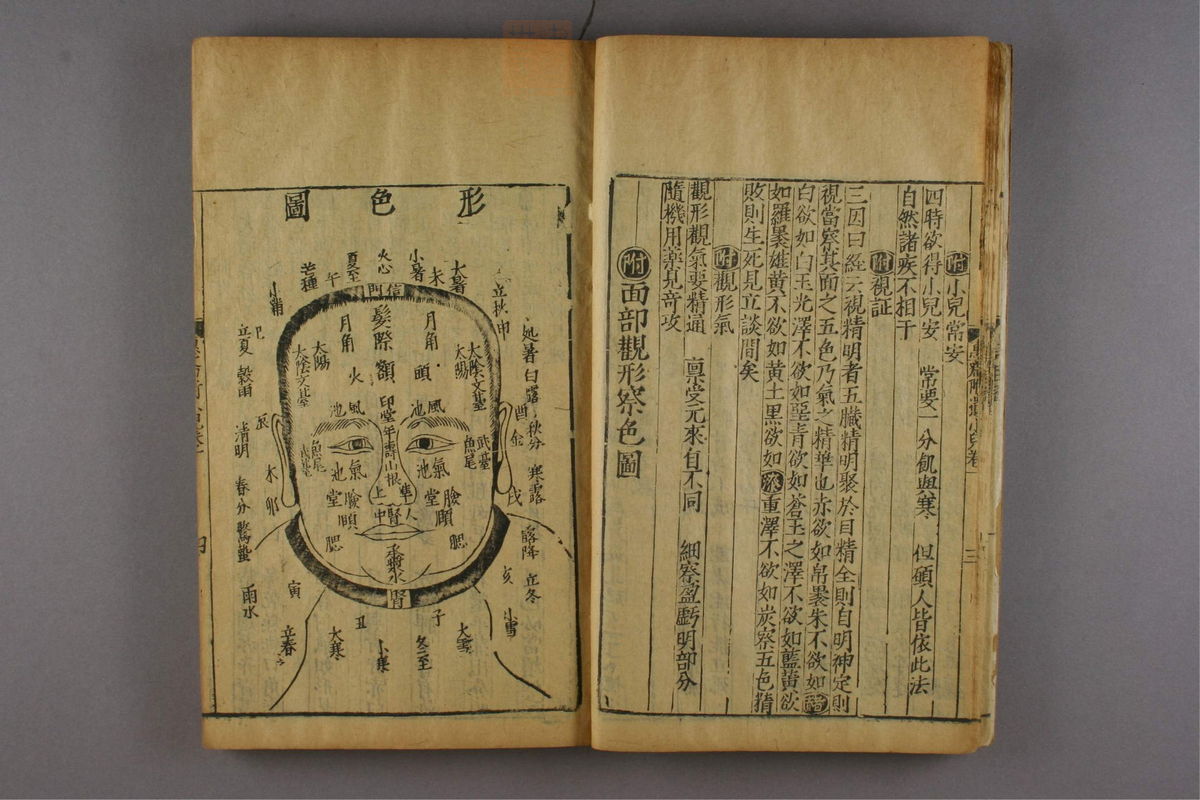 附小兒常安
四時欲得小兒安 常要一分飢與寒 但願人皆依此法
自然諸疾不相干
附視証
三因曰經云視精明者五臟精明聚於目精全則目明神定則
視當察其面之五色乃氣之精華也赤欲如帛裹朱不欲如赭
白欲如白玉光澤不欲如堊青欲如蒼玉之澤不欲如藍黃欲
如羅裹雄黃不欲如黃土黑欲如漆重澤不欲如炭察五色精
敗則生死見立談間矣
附觀形氣
觀形觀氣要精通 稟受元來自不同 細察盈虧明部分
隨機用藥見奇攻
附面部觀形察色圖
三
形色圖
立秋 申
大暑
未
小暑
火心
夏至
午
芒種
小滿
巳
立夏 穀雨
辰
清明
木 卯
春分 驚蟄
寅
雨水
立春
丑
大寒
小寒
子
冬至
大雪
小雪
亥
立冬
霜降
戌
寒露
酉金
處暑 白露 秋分
信門
髮際
額
月角
月角
頭
火
太陰文臺
太陽
太陽
太陰文臺
印堂
年壽
山根
風池
風池
武臺
魚尾
魚尾
武臺
氣池
氣池
臉
堂
頤
臉
堂
頤
腮
腮
準上
人中
腎
承漿
水
腎
四